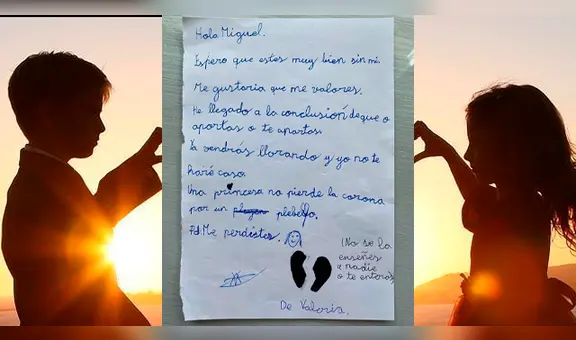 Hola Miguel.
Espero que estes muy bien sin mi.
Me gustaria que me valores.
He llegado a la conclusión de que o
aportas o te apartas.
Ya vendrás llorando y yo no te
haré caso.
Una princesa no pierde la corona
por un plebeyo.
Pd: Me perdistes.
(No se la
enseñes
a nadie
o te enteras)
De Valeria.